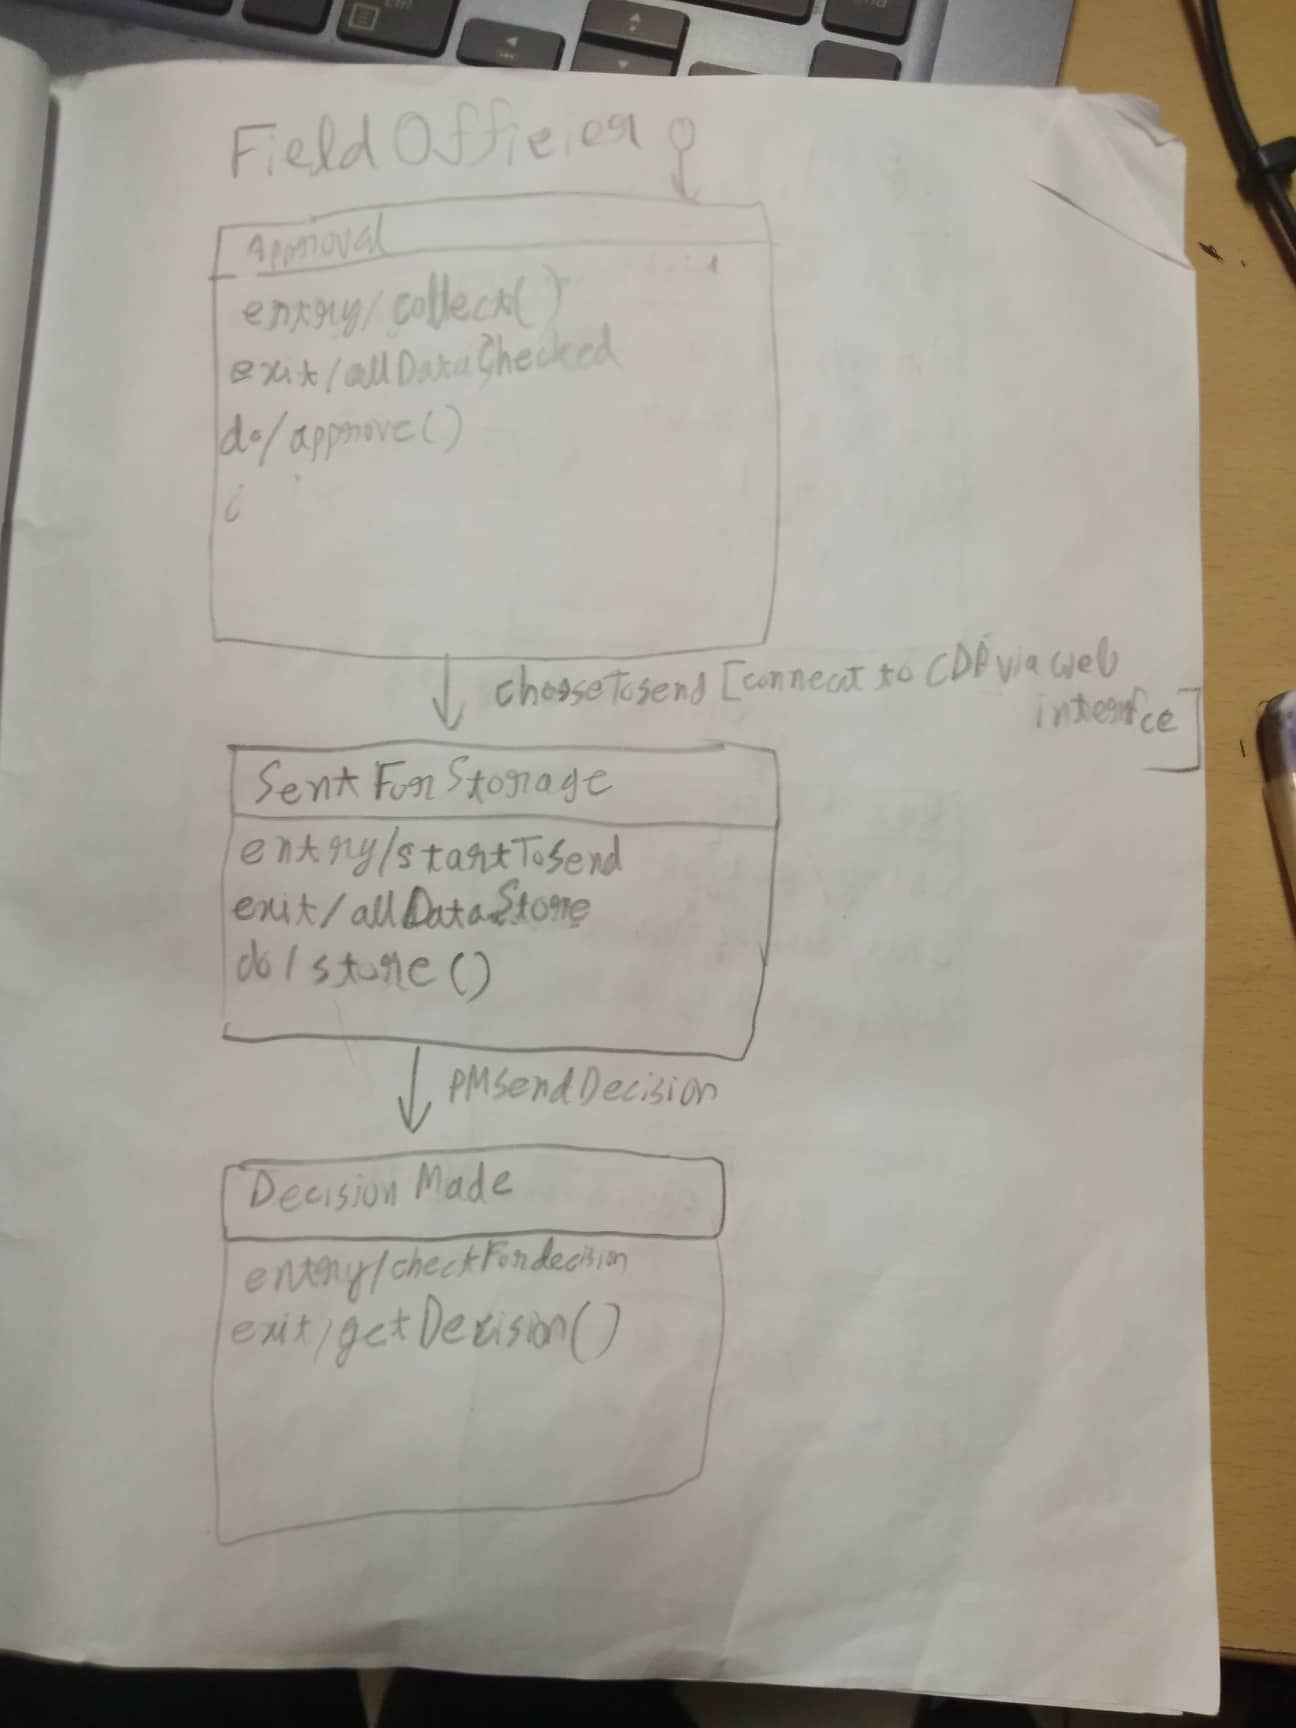 Field Officier
Approval
entry/collect()
exit/allDataChecked
do/approve()
chooseTosend [connect to CDP via web
interfce]
Sent For Storage
entry/startToSend
exit/allDataStore
do/store()
PMSendDecision
Decision Made
entry/checkFordecision
exit/getDecision()